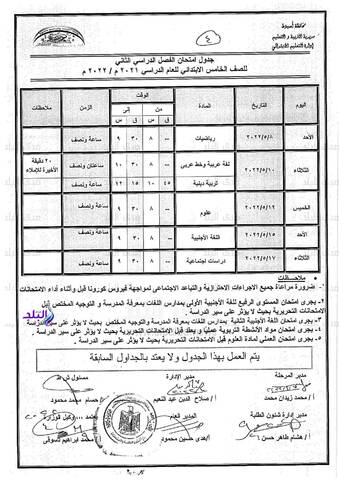 محافظة أسيوط
مديرية التربية و التعليم
إدارة التعليم الابتدائي
٤
جدول امتحان الفصل الدراسي الثاني
للصف الخامس الابتدائي للعام الدراسي ٢٠٢١ م / ٢٠٢٢ م
اليوم التاريخ المادة الوقت الزمن ملاحظات
من إلى
ق س ق س
الأحد ٢٠٢٢/٥/٨ رياضيات -- ٨ ٣٠ ٩ ساعة ونصف
الثلاثاء ٢٠٢٢/٥/١٠ لغة عربية وخط عربي -- ٨ ٣٠ ١٠ ساعتان ونصف ٢٠ دقيقة الأخيرة للإملاء
تربية دينية ٤٥ ١٠ ١٥ ١٢ ساعة ونصف
الخميس ٢٠٢٢/٥/١٢ علوم -- ٨ ٣٠ ٩ ساعة ونصف
الأحد ٢٠٢٢/٥/١٥ اللغة الأجنبية -- ٨ ٣٠ ٩ ساعة ونصف
الثلاثاء ٢٠٢٢/٥/١٧ دراسات اجتماعية -- ٨ ٣٠ ٩ ساعة ونصف
ملاحظات
١- ضرورة مراعاة جميع الاجراءات الاحترازية والتباعد الاجتماعي لمواجهة فيروس كورونا قبل وأثناء أداء الامتحانات
٢- يجري امتحان المستوى الرفيع للغة الأجنبية الأولى بمدارس اللغات بمعرفة المدرسة و التوجيه المختص قبل
الامتحانات التحريرية بحيث لا يؤثر على سير الدراسة .
٣- يجري امتحان اللغة الأجنبية الثانية بمدارس اللغات بمعرفة المدرسة والتوجيه المختص بحيث لا يؤثر على سير الدراسة
٤- يجري امتحان مواد الأنشطة التربوية عمليا و يعقد قبل الامتحانات التحريرية بحيث لا يؤثر على سير الدراسة .
٥- يجري الامتحان العملي لمادة العلوم قبل الامتحانات التحريرية بحيث لا يؤثر على سير الدراسة .
التلد
يتم العمل بهذا الجدول ولا يعتد بالجداول السابقة
مدير المرحلة مدير الإدارة
أ / محمد زيدان محمد أ / صلاح الدين عبد النعيم حسام محمد محمود
مدير إدارة شئون الطلبة المدير العام يعتمد ... وكيل الوزارة
أ / هشام طاهر حسن محمد إبراهيم دسوقي